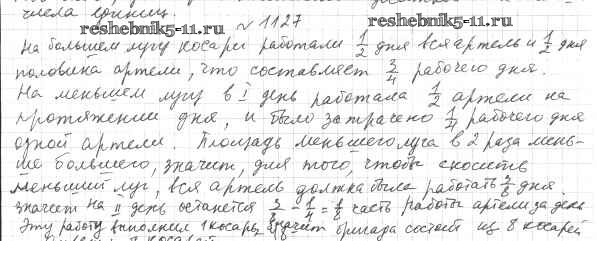 числа единиц.
reshebnik5-11.ru № 1127 reshebnik5-11.ru
На большем лугу косари работали 1/2 дня вся артель и 1/2 дня
половина артели, что составляет 3/4 рабочего дня.
На меньшем лугу в I день работала 1/2 артели на
протяжении дня, и было затрачено 1/4 рабочего дня
одной артели. Площадь меньшего луга в 2 раза мень-
ше большего, значит, для того, чтобы скосить
меньший луг, вся артель должна была работать 3/8 дня.
значит на II день останется 3/8 - 1/4 = 1/8 часть работы артели за день
Эту работу выполнил 1 косарь, значит бригада состоит из 8 косарей